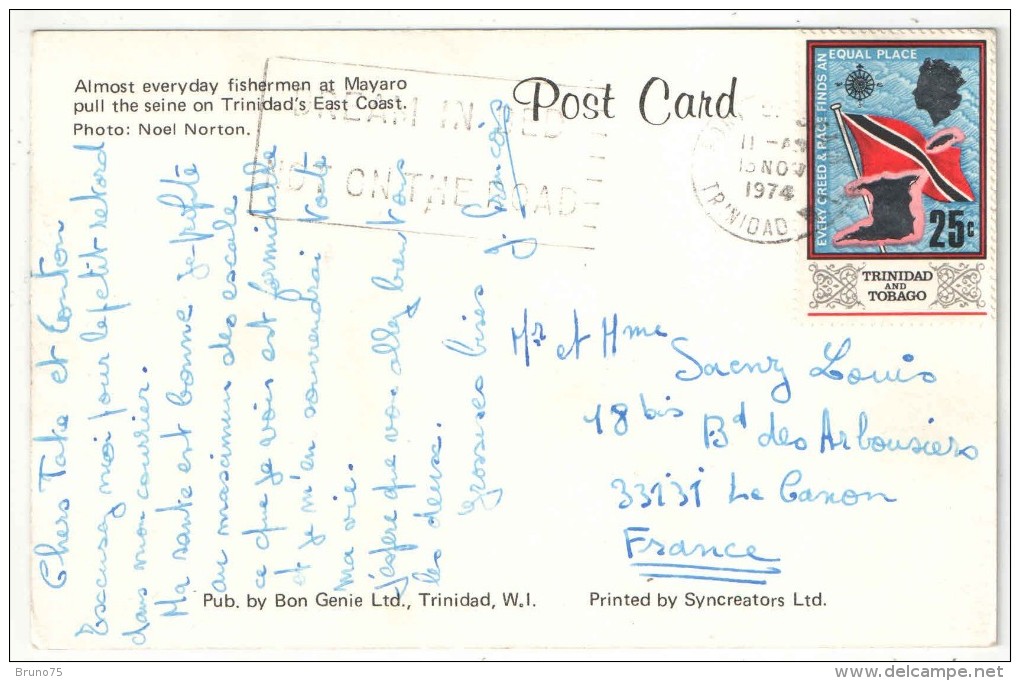 Almost everyday fishermen at Mayaro
pull the seine on Trinidad's East Coast.
Photo: Noel Norton.
Post Card
DREAM IN BED
NOT ON THE ROAD
11 - AM
13 NO
1974
TRINIDAD
EVERY CREED & RACE FINDS AN EQUAL PLACE
25c
TRINIDAD
AND
TOBAGO
Chers Tata et Tonton
Excusez moi pour le petit retard
dans mon courrier.
Ma santé est bonne je profite
au maximum des escale
ce que je vois est formidable
et je m'en souvendrai toute
ma vie.
J'espère que vous allez bien tous
les deux.
Grosses bises
J. François
Mr et Mme
Saenz Louis
18 bis Bd des Arbousiers
33131 Le Canon
France
Pub. by Bon Genie Ltd., Trinidad, W.I.
Printed by Syncreators Ltd.
Bruno75